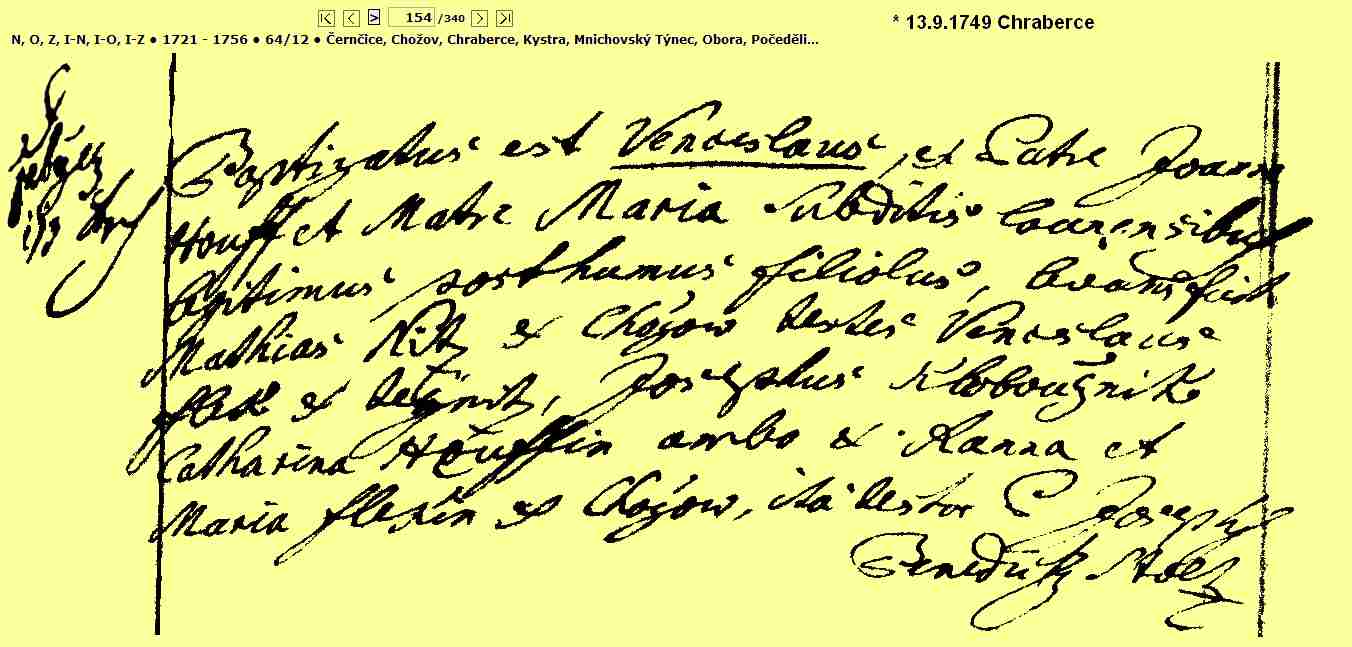 154 /340
* 13.9.1749 Chraberce
N, O, Z, I-N, I-O, I-Z ● 1721 - 1756 ● 64/12 ● Černčice, Chožov, Chraberce, Kystra, Mnichovský Týnec, Obora, Počeděli...
Baptizatus est Venceslaus, ex Patre Joanne
Houff et Matre Maria Subditis Launensibus
legitimus posthumus filiolus, levans fuit
Mathias ex Chožow testes Venceslaus
ex Josephus Kloboužnik
Catharina Houffin ambo ex Ranna et
Maria flexin ex Chožow, ita testor P Joseph
Benedikt Stolz